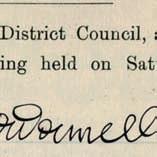 District Council, a
ing held on Sat